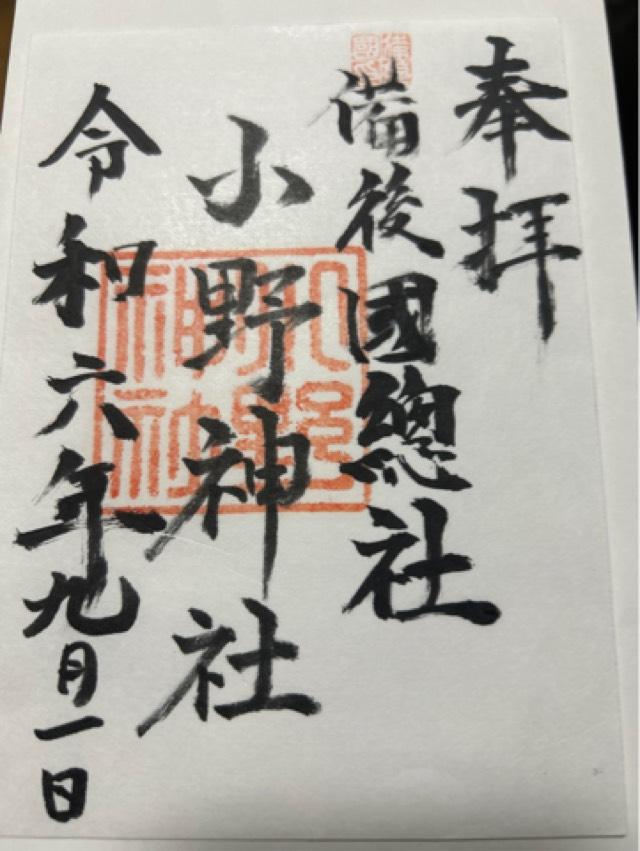 奉拝
備後國總社
小野神社
令和六年九月一日
小野神社